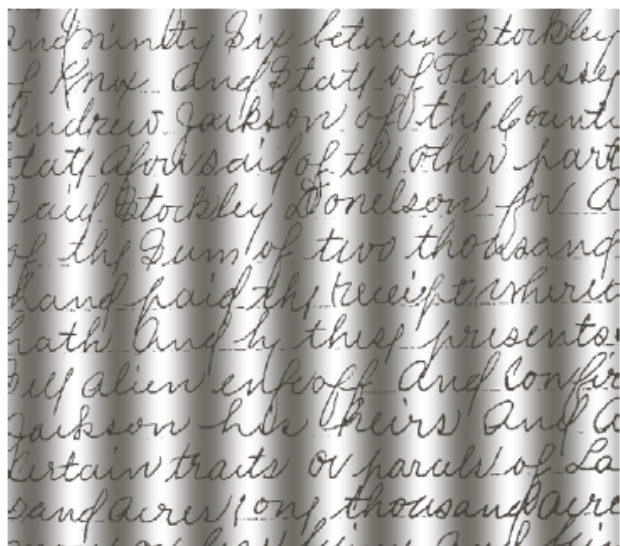 and Ninety Six between Stockley
of Knox And State of Tennessee
Andrew Jackson of the County
State aforesaid of the other part
Said Stockley Donelson for A
of the Sum of two thousand
hand paid the receipt wherio
hath And by these presents
Sell alien enfeoff And Confir
Jackson his heirs And A
Certain traits or parcels of La
sand acres (one thousand acre